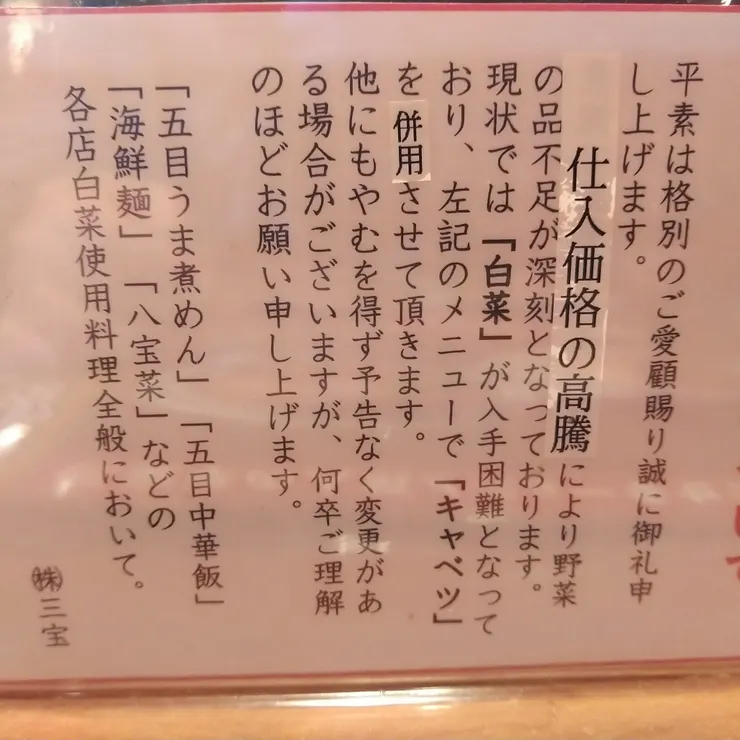 平素は格別のご愛顧賜り誠に御礼申
し上げます。
仕入価格の高騰により野菜
の品不足が深刻となっております。
現状では「白菜」が入手困難となって
おり、左記のメニューで「キャベツ」
を併用させて頂きます。
他にもやむを得ず予告なく変更があ
る場合がございますが、何卒ご理解
のほどお願い申し上げます。
「五目うま煮めん」「五目中華飯」
「海鮮麺」「八宝菜」などの
各店白菜使用料理全般において。
㈱三宝